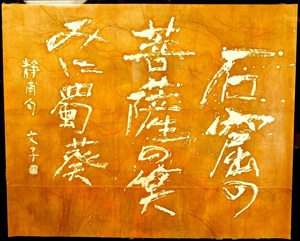 石窟の
菩薩の笑
みに蜀葵
静南句 文子